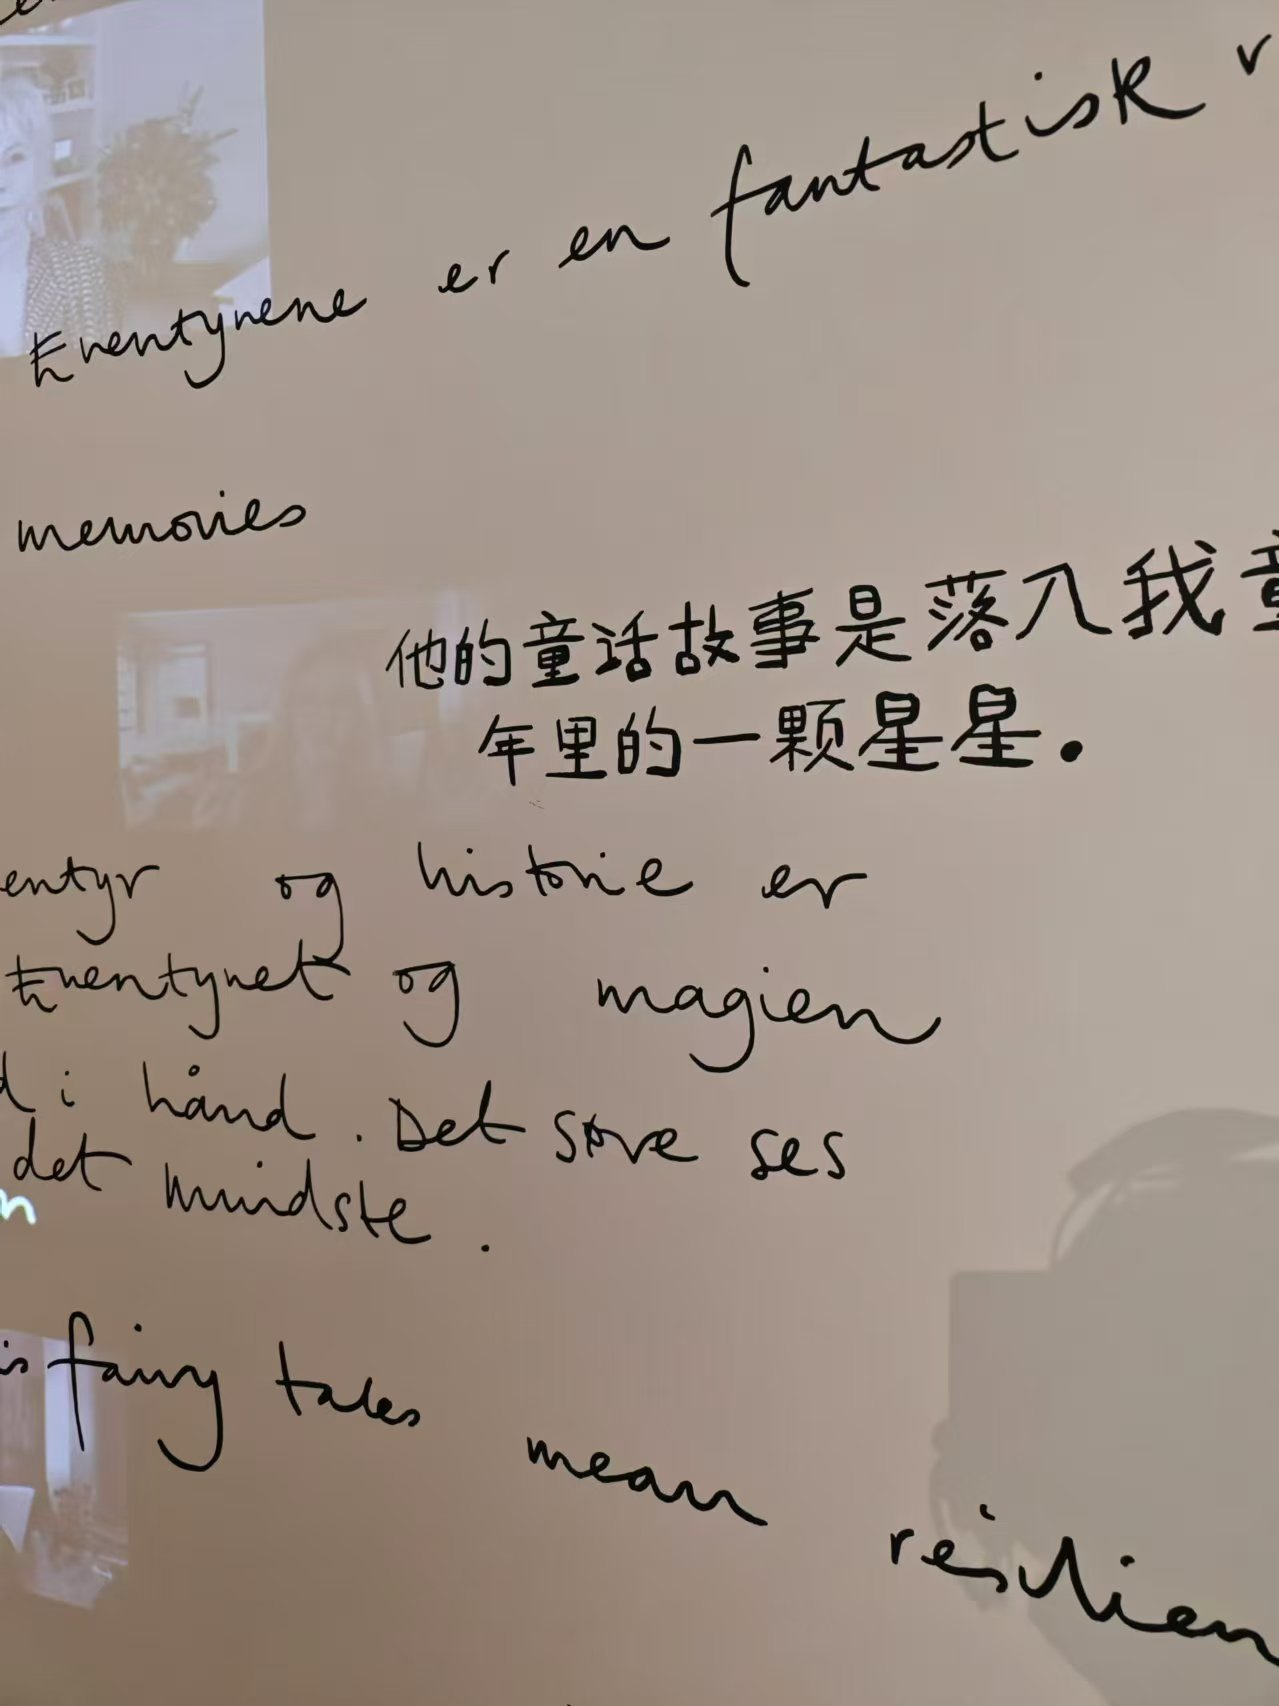 Eventyrene er en fantastisk
memories
他的童话故事是落入我童
年里的一颗星星.
entyr og historie er
Eventyret og magien
d i hånd. Det store ses
det mindste.
is fairy tales mean resilien